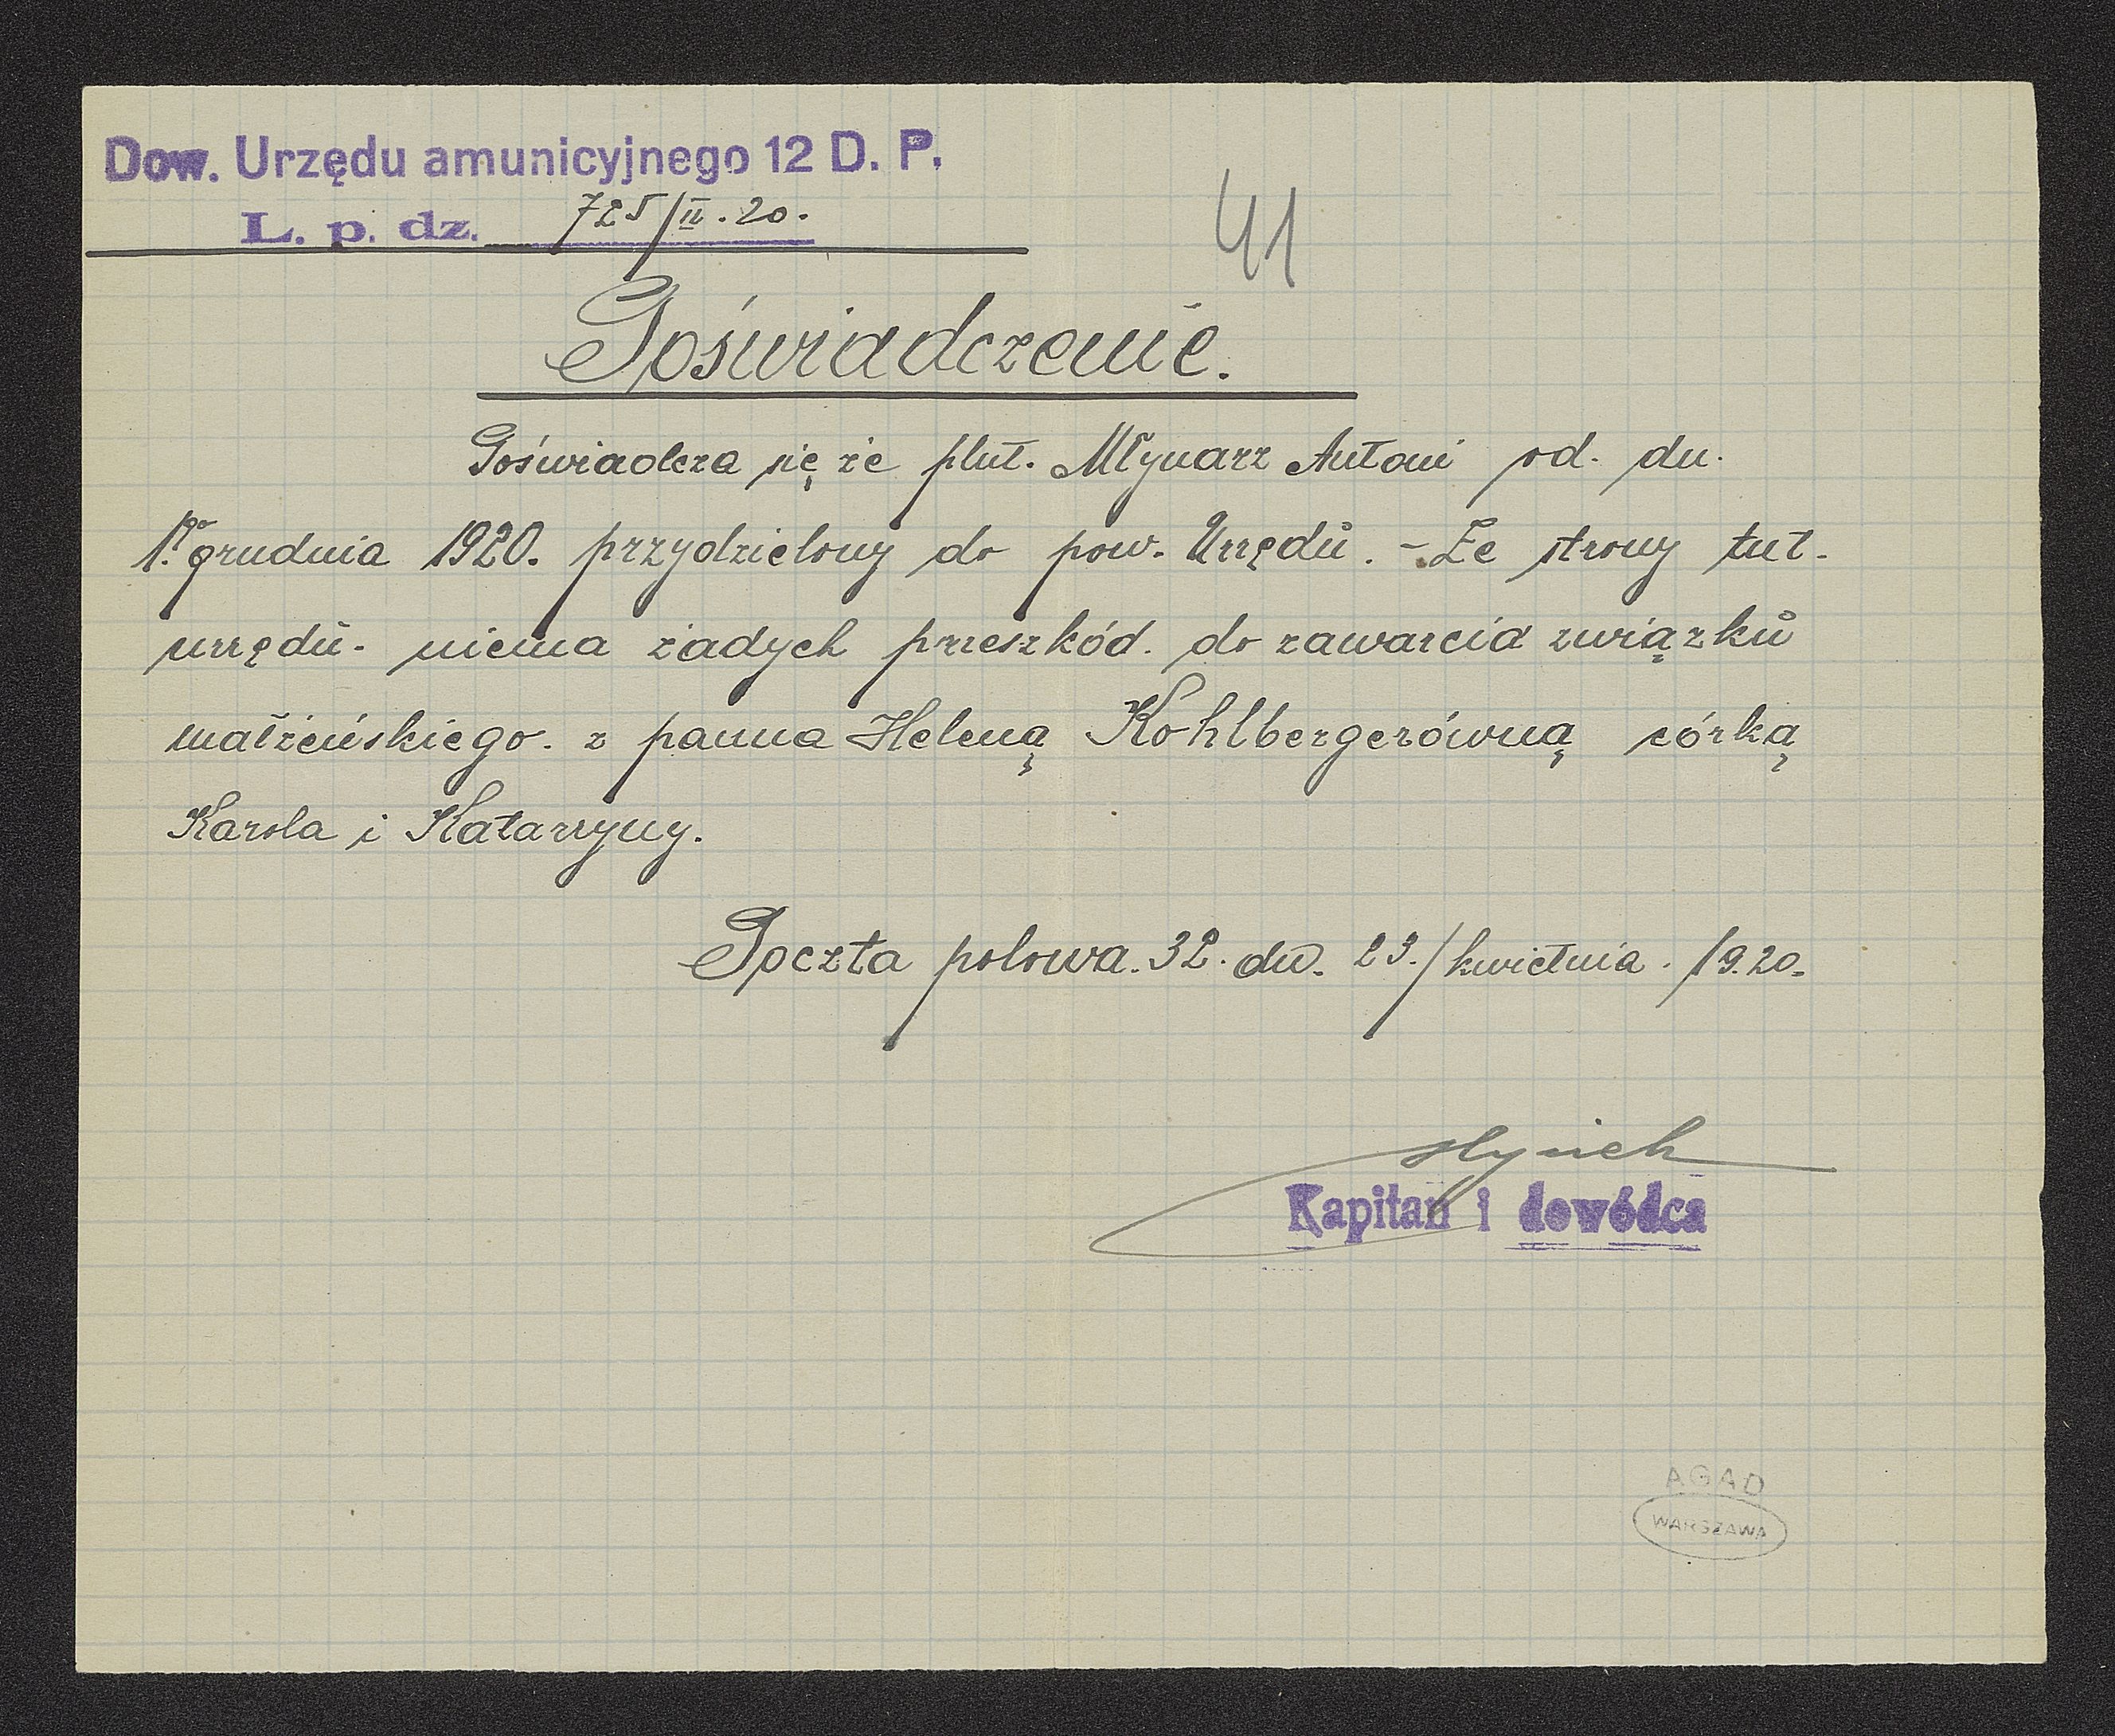 Dow. Urzędu amunicyjnego 12 D. P.
L. p. dz. 725/II. 20.
41
Poświadczenie.
Poświadcza się że plut. Młynarz Antoni od. dn.
1.go grudnia 1920. przydzielony do pow. Urzędu. - Ze strony tut.
urzędu. niema żadych przeszkód. do zawarcia związku
małżeńskiego. z panna Heleną Kohlbergerówną córką
Karola i Katarzyny.
Poczta polowa. 32. dn. 23./kwietnia. 1920.
Kapitan i dowódca
AGAD
WARSZAWA